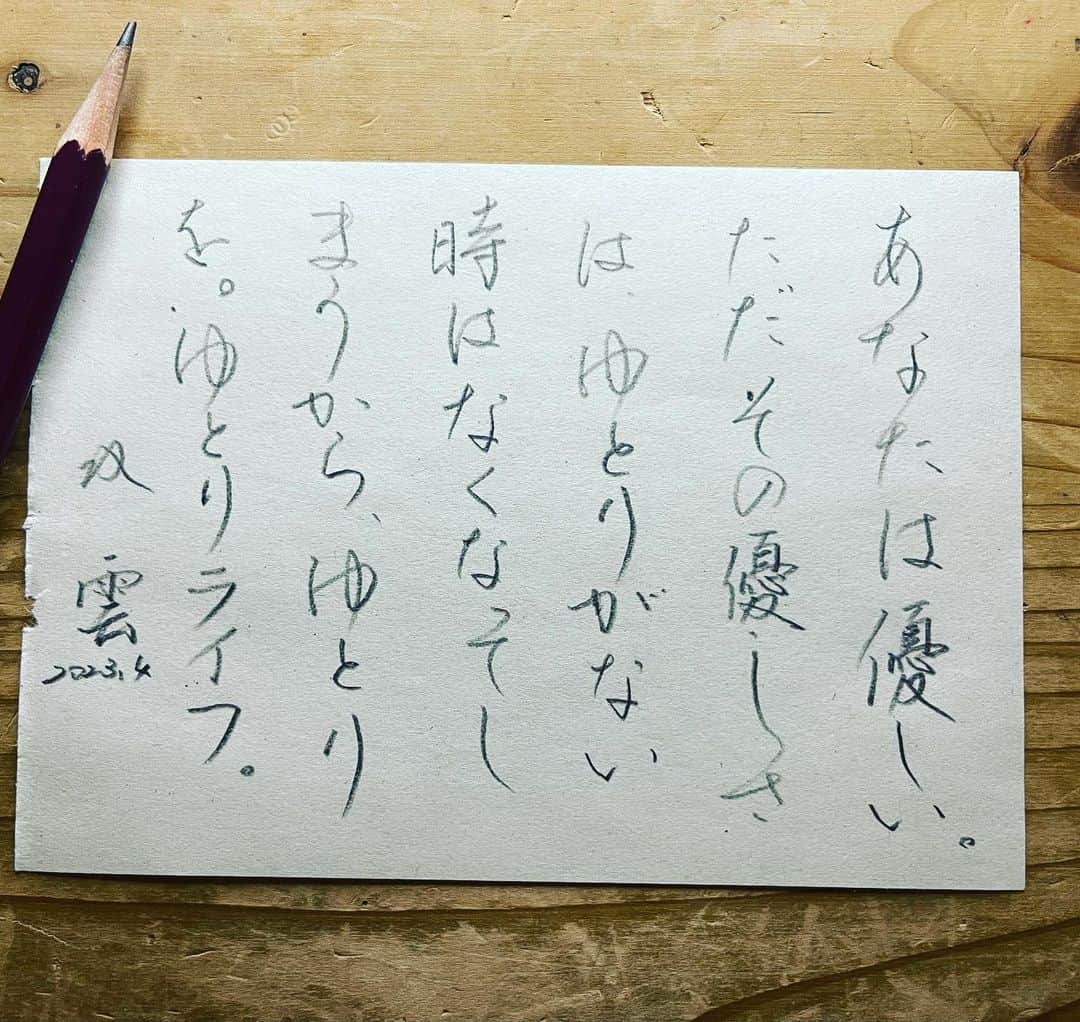 あなたは優しい。
ただその優しさ
は、ゆとりがない
時はなくなてし
まうから、ゆとり
を。ゆとりライフ。
双雲
2023.4